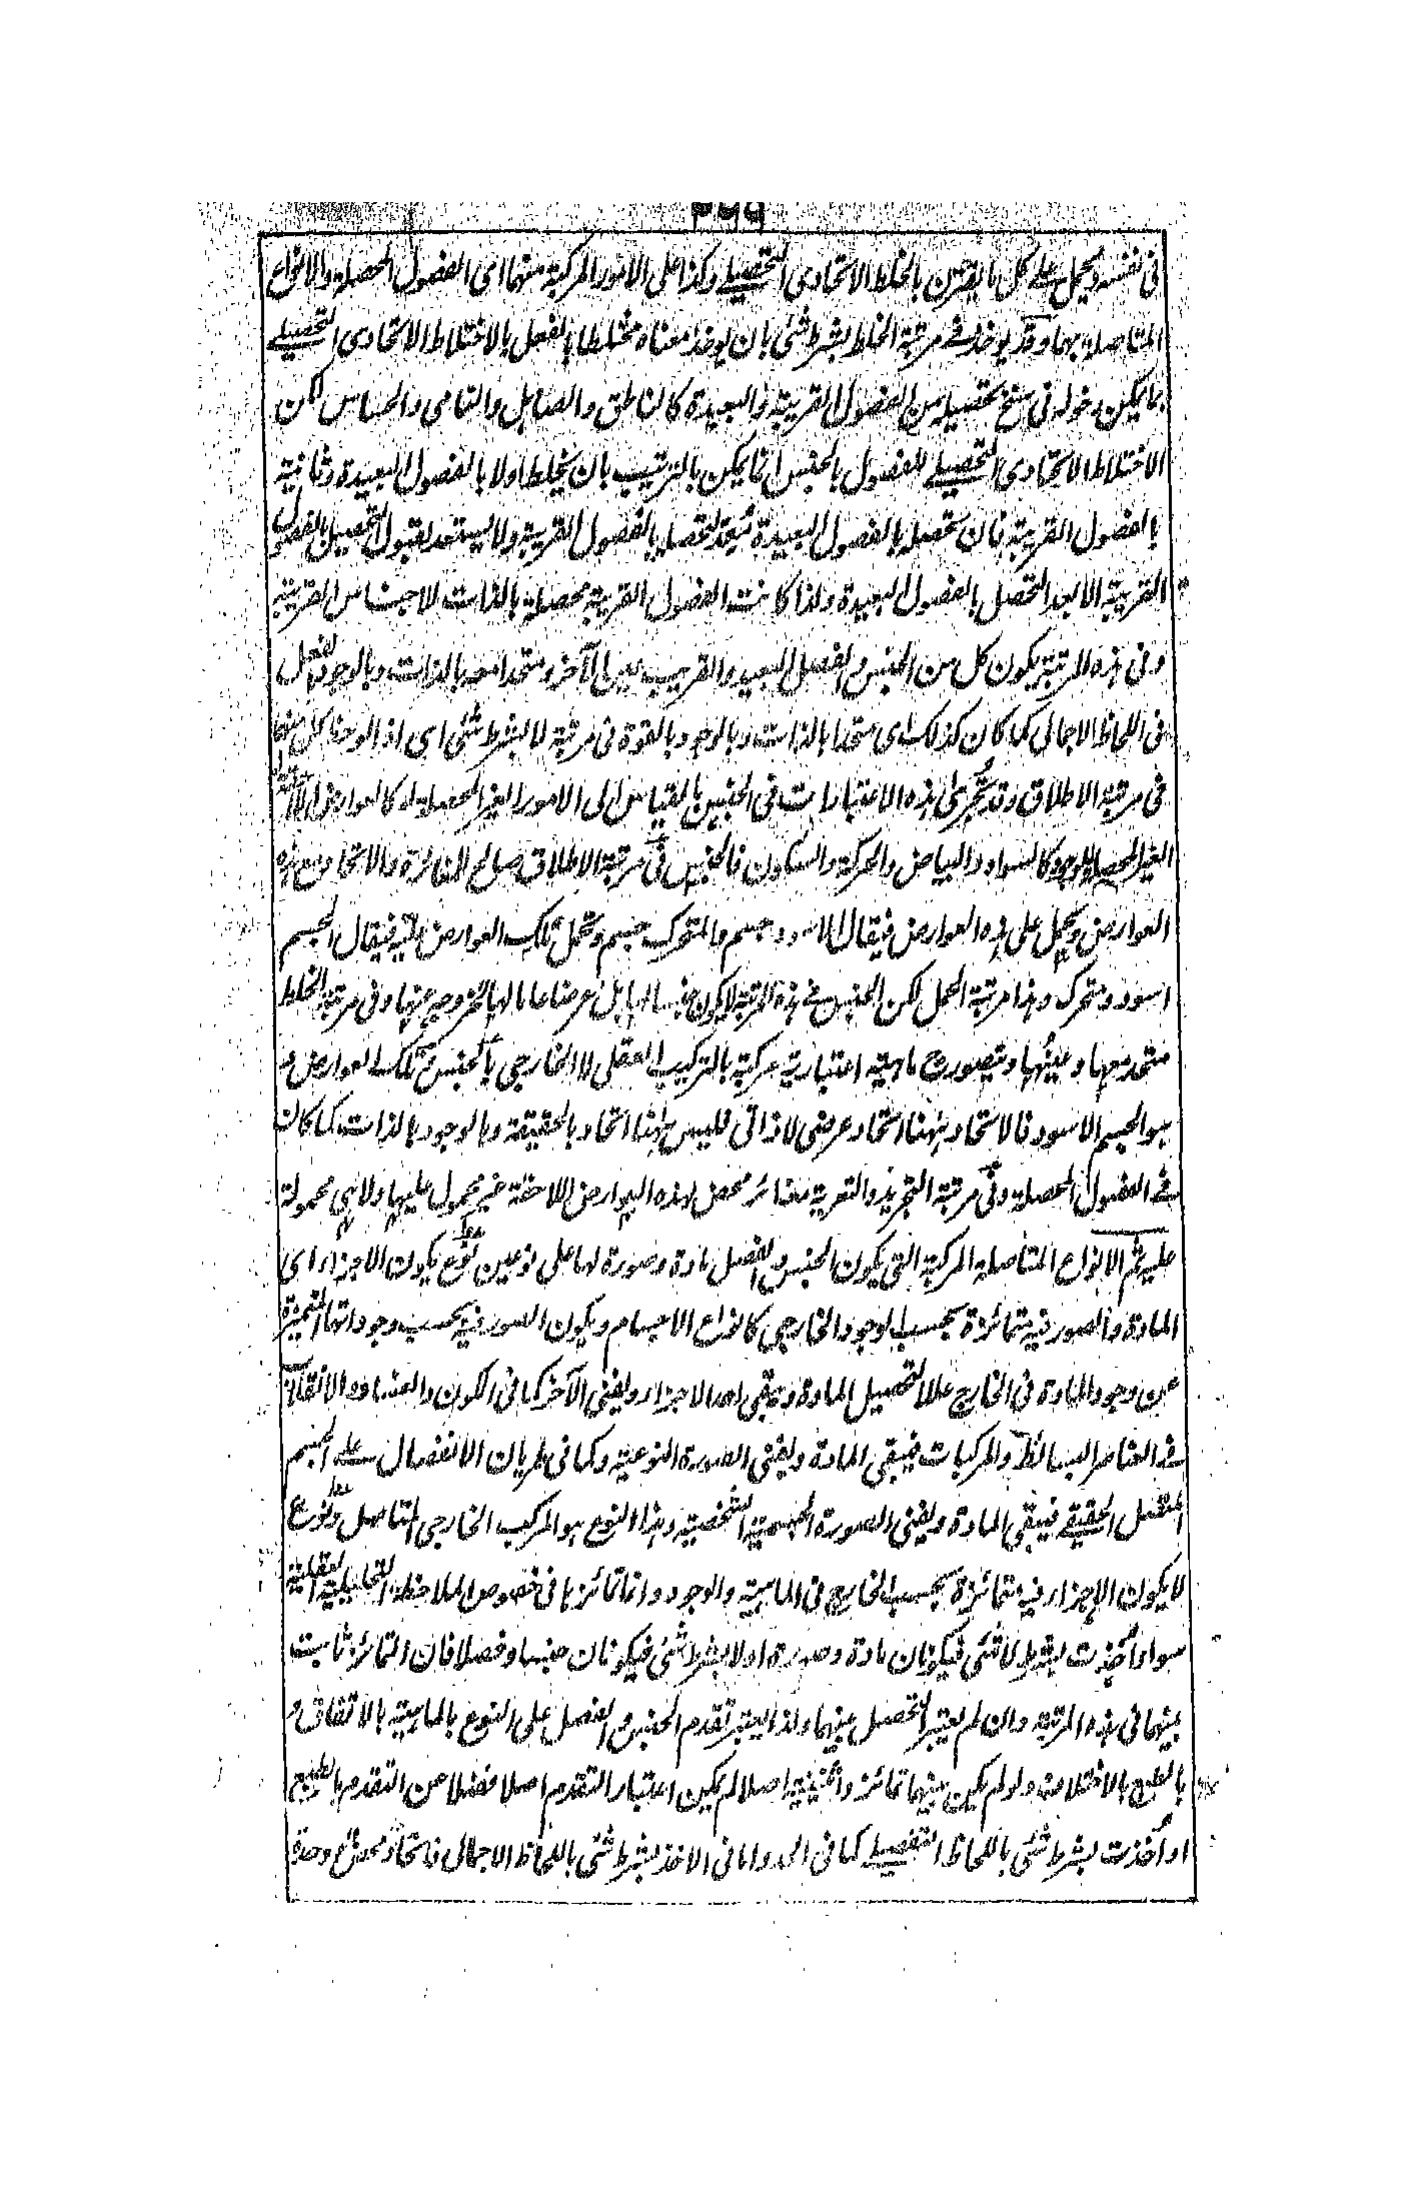 فى نفسه ويحمل على كل ما يقترن بالخلط الاتحادى التحصيلے وكذا على الامور المركبة منهما اى الفصول المحصلة والانواع
المتاصلة بها وقد يوخذ فے مرتبة الخلط بشرط شئى بان يوخذ معناه مختلطا بالفعل بالاختلاط الاتحادى التحصيلے
بما يمكن دخوله فى سنخ تحصيله من الفصول القريبة والبعيدة كالناطق والصاہل والنامى والحساس لكن
الاختلاط الاتحادى التحصيلے للفصول بالجنس انما يمكن بالترتيب بان يختلط اولا بالفصول البعيدة وثانية
بالفصول القريبة فان تحصله بالفصول البعيدة يعد لتحصله بالفصول القريبة ولا يستعد لقبول التحصيل بالفصول
القريبة الا بعد التحصل بالفصول البعيدة ولذا كانت الفصول القريبة محصلة بالذات للاجناس القريبة
وفى ہذه المرتبة يكون كل من الجنس والفصل البعيد والقريب عين الآخر ومتحدا معه بالذات وبالوجود بالفعل
فى اللحاظ الاجمالى كما كان كذلك اى متحدا بالذات وبالوجود بالقوة فى مرتبة لا بشرط شئى اى اذا لوحظ كل منهما
فى مرتبة الاطلاق وقد تجرى ہذه الاعتبارات فى الجنس بالقياس الى الامور الغير المحصلة له كالعوارض
الغير المحصلة للوجود كالسواد والبياض والحركة والسكون فالجنس فى مرتبة الاطلاق صالح للمغائرة والاتحاد مع ہذه
العوارض ويحمل على ہذه العوارض فيقال الاسود جسم والمتحرك جسم وتحمل تلك العوارض عليه فيقال الجسم
اسود ومتحرك وہذا مرتبة الحمل لكن الجنس فے ہذه المرتبة لا يكون جنسا لها بل عرضا عاما لها لخروجه عنها وفى مرتبة الخلط
متحد معها وعينها ويتصور ح ماہية اعتبارية مركبة بالتركيب العقلى لا الخارجى بالجنس وتلك العوارض و
ہو الجسم الاسود فالاتحاد ہہنا اتحاد عرضى لا ذاتى فليس ہہنا اتحاد بالحقيقة وبالوجود بالذات كما كان
فے الفصول المحصلة وفى مرتبة التجريد والتعرية مغائر محض لهذه العوارض اللاحقة غير محمول عليها ولا ہى محمولة
عليه ثم الانواع المتاصلة المركبة التى يكون الجنس والفصل مادة وصورة لها على نوعين نوع يكون الاجزاء اى
المادة والصورة فيه متمائزة بحسب الوجود الخارجى كانواع الاجسام ويكون الصور فيه بحسب وجوداتها المتميزة
عن وجود المادة فى الخارج عللا لتحصيل المادة ويبقى احد الاجزاء ويفنى الآخر كما فى الكون والفساد والانقلاب
فے العناصر البسائط والمركبات فيبقى المادة ويفنى الصورة النوعية وكما فى طريان الانفصال علے الجسم
المتصل الحقيقے فيبقى المادة ويفنى الصورة الجسمية الشخصية وہذا النوع ہو المركب الخارجى المتاصل ونوع
لا يكون الاجزاء فيه متمائزة بحسب الخارج فى الماہية والوجود وانما تمائزہا فى خصوص الملاحظة التحليلية العقلية
سواء اخذت بشرط لا شئى فيكونان مادة وصورة او لا بشرط شئى فيكونان جنسا وفصلا فان التمائز ثابت
بينهما فى ہذه المرتبة وان لم يعتبر التحصل بينهما ولذا يعتبر تقدم الجنس والفصل على النوع بالماہية بالاتفاق و
بالطبع بالاختلاف ولو لم يكن بينهما تمائز واثنينية اصلا لم يمكن اعتبار التقدم اصلا فضلا عن التقدم بالطبع
او اخذت بشرط شئى باللحاظ التفصيلے كما فى الحد واما فى الاخذ بشرط شئى باللحاظ الاجمالى فاتحاد محض وحدة